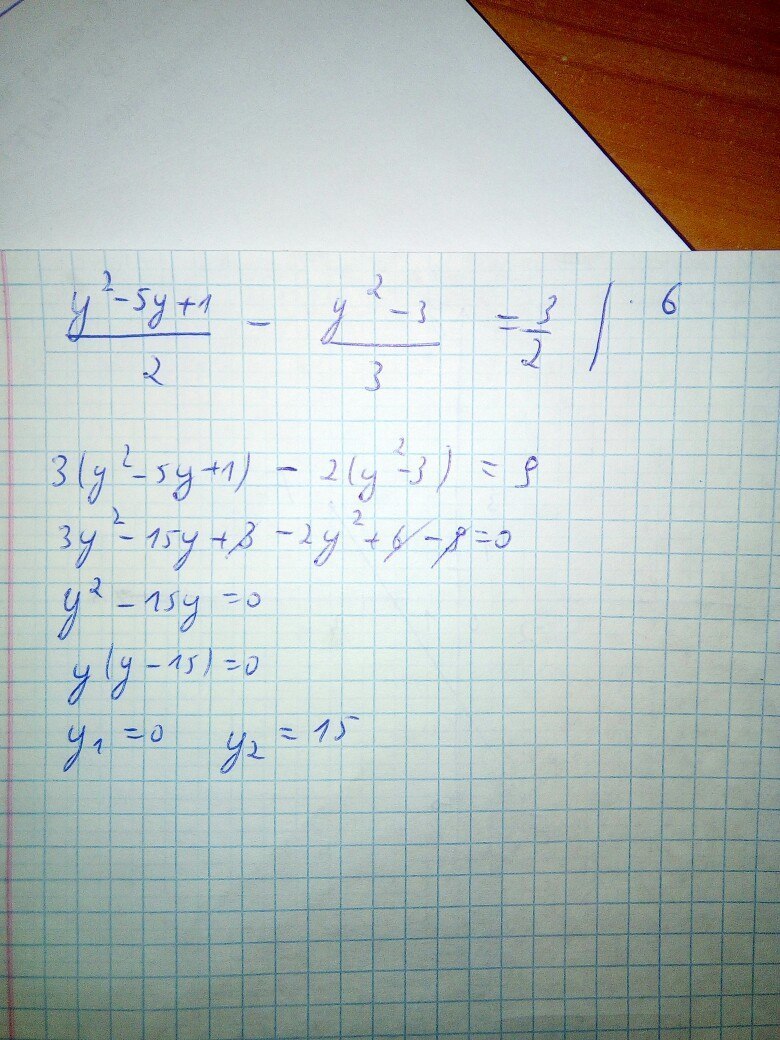 (y²-5y+1)/2 - (y²-3)/3 = 3/2 | · 6
3(y²-5y+1) - 2(y²-3) = 9
3y²-15y+3-2y²+6-9=0
y²-15y=0
y(y-15)=0
y₁=0 y₂=15